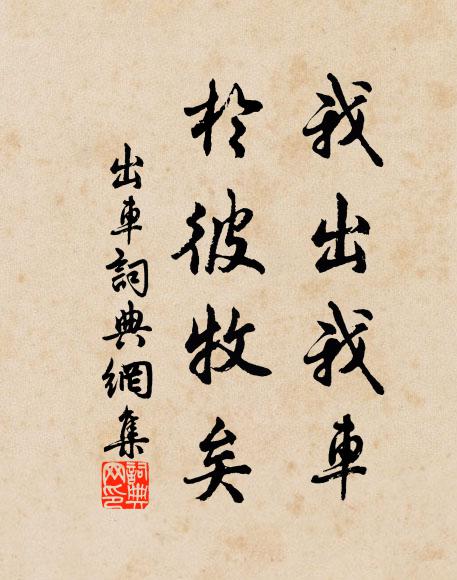 我出我車
於彼牧矣
出車詞典網集
詞典网印